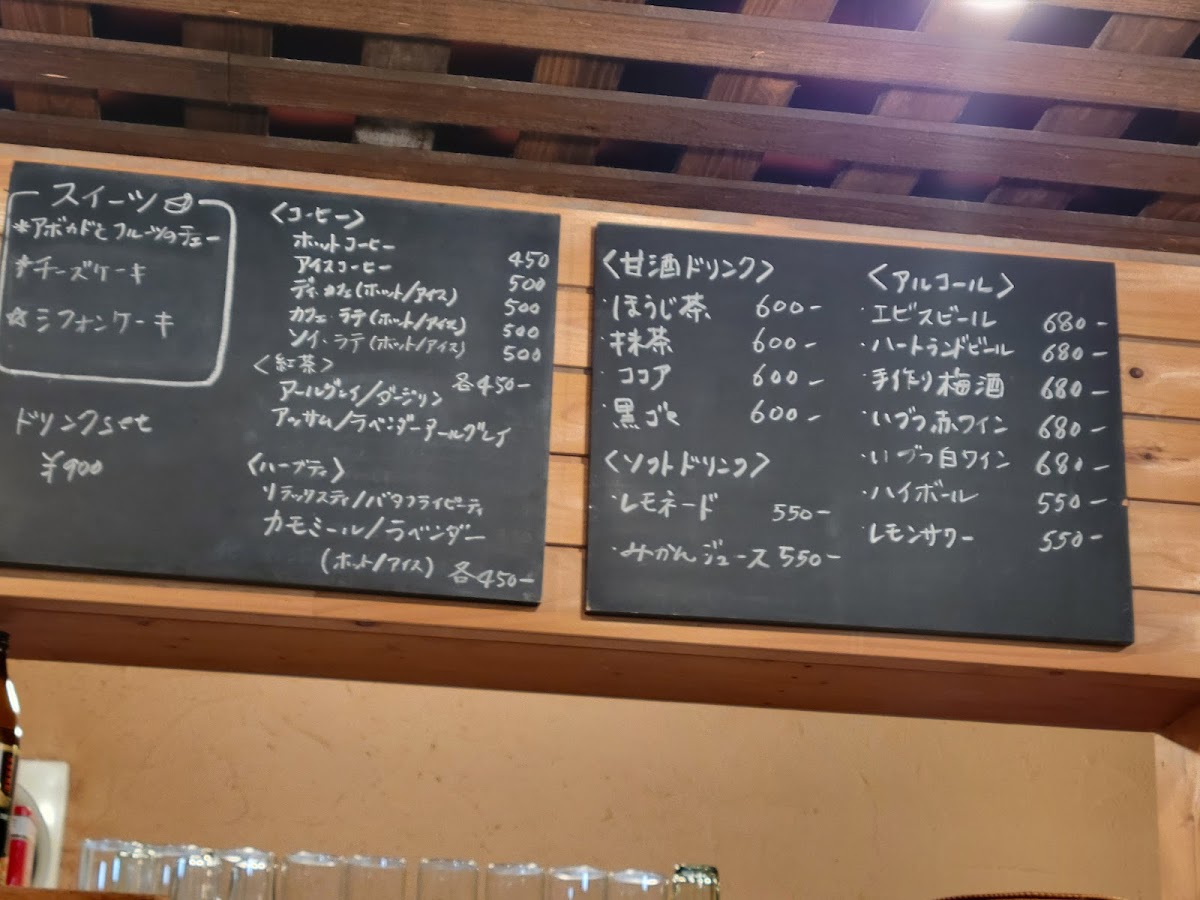 スイーツ
*アボカドとフルーツのチェー
*チーズケーキ
☆シフォンケーキ
ドリンクset
¥900
〈コーヒー〉
ホットコーヒー 450
アイスコーヒー 500
ディカフェ(ホット/アイス) 500
カフェラテ(ホット/アイス) 500
ソイ・ラテ(ホット/アイス) 500
〈紅茶〉
アールグレイ/ダージリン 各450-
アッサム/ラベンダーアールグレイ
〈ハーブティ〉
リラックスティ/バタフライピーティ
カモミール/ラベンダー
(ホット/アイス) 各450-
〈甘酒ドリンク〉
・ほうじ茶 600-
・抹茶 600-
・ココア 600-
・黒ゴマ 600-
〈ソフトドリンク〉
・レモネード 550-
・みかんジュース 550-
〈アルコール〉
・エビスビール 680-
・ハートランドビール 680-
・手作り梅酒 680-
・いづつ赤ワイン 680-
・いづつ白ワイン 680-
・ハイボール 550-
・レモンサワー 550-